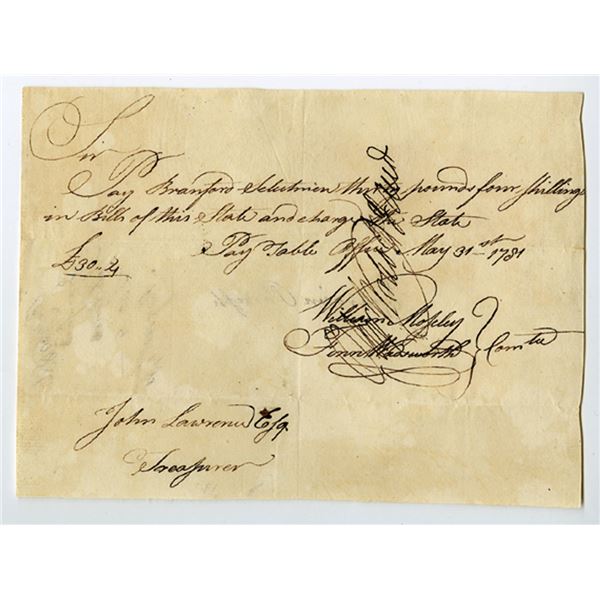 Sir
Pay Branford Selectmen thirty pounds four Shillings
in Bills of this State and charge the State
Pay Table Office May 31st 1781
£30.. 4
William Mosely
Fenn Wadsworth } Comtee
John Lawrence Esq.
Treasurer